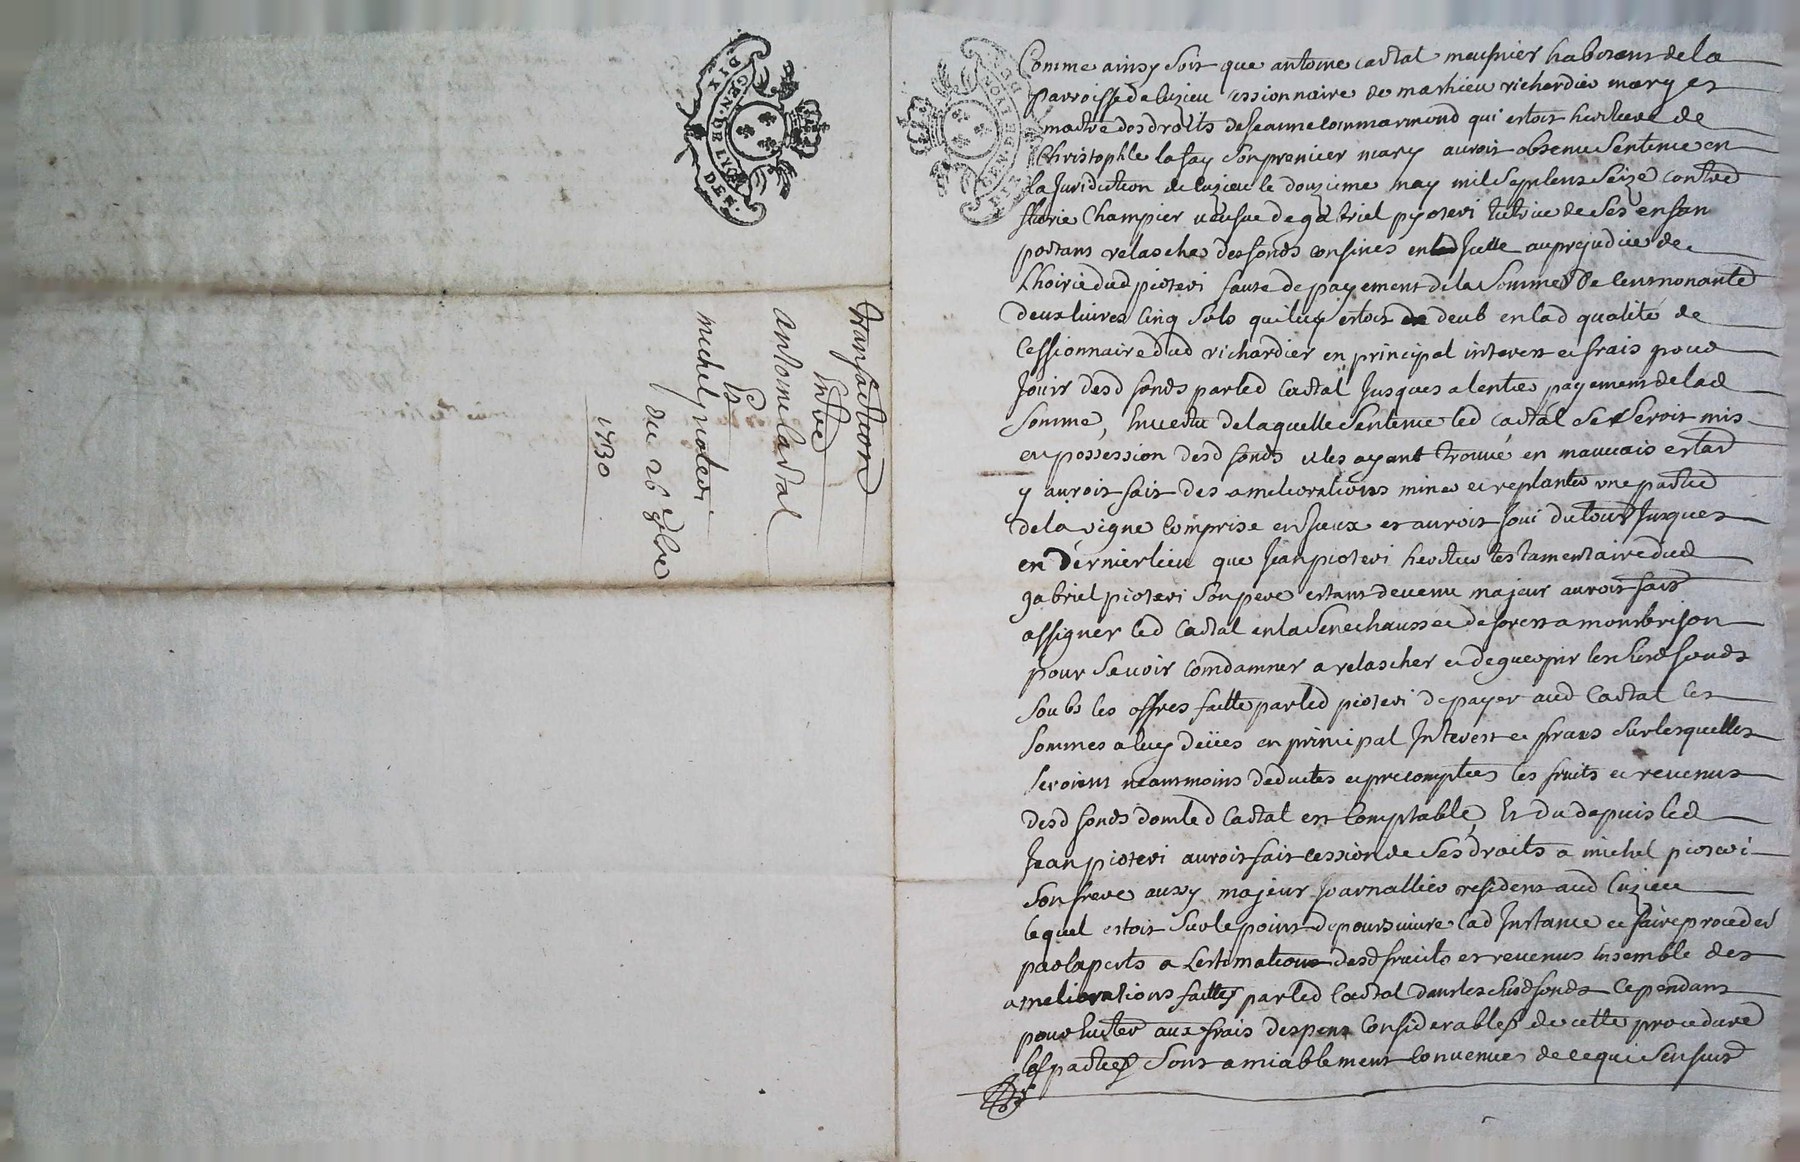 GEN. DE LYON
DIX DEN.
transaction
Entre
antoine cartal
Et
michel pioteri
du 26 9bre
1730
Comme ainsy soit que antoine cartal meusnier habitant de la
parroisse de luzieu cessionnaire de mathieu richardier mary et
maitre des droits de jeanne commarmond qui estoit heritiere de
Christophle lafay son premier mary auroit obtenu Sentence en
la Juridiction de luzieu le douzieme may mil Sept cens Seize contre
fleurie Champier veufue de gabriel pyoteri tutrice de Ses enfan
portant relasche des fonds confinés en Icelle au prejudice de
Lhoirie dud pioteri faute de payement de la Somme De cent nonante
deux livres Cinq Sols qui luy estoit deub en lad qualité de
Cessionnaire dud richardier en principal interest et frais pour
Jouir desd fonds par led Cartal Jusques a lentier payement de lad
Somme, En vertu de laquelle Sentence led Cartal Se Seroit mis
en possession desd fonds et les ayant trouvé en mauvais estat
y auroit fait des ameliorations miné et replanté une partie
de la vigne Comprise en Iceux et auroit Joui du tout Jusques
en Dernier lieu que Jean pioteri heritier testamentaire dud
gabriel pioteri Son pere estant devenu majeur auroit fait
assigner led Cartal en la Senechaussée de forest a montbrison
pour Se voir Comdamner a relascher et deguerpir les Susd fonds
Soubs les offres faitte par led pioteri de payer aud Cartal les
Sommes a luy deües en principal Interest et frais Sur lesquelles
Seroient neantmoins deduites et precomptées les fruits et revenus
desd fonds dont led Cartal est Comptable, Et du depuis led
Jean pioteri auroit fait cession de Ses droits a michel pioteri
Son frere aussy majeur Journallier resident aud luzieu
lequel estoit Sur le point de poursuivre lad Instance et faire proceder
par experts a Lestimation desd fruits et revenus Ensemble des
ameliorations faittes par led Cartal dans les Susd fonds Cependant
pour Eviter aux frais despens Considerables de cette procedure
les parties Sont amiablement Convenues de ce qui Sensuit